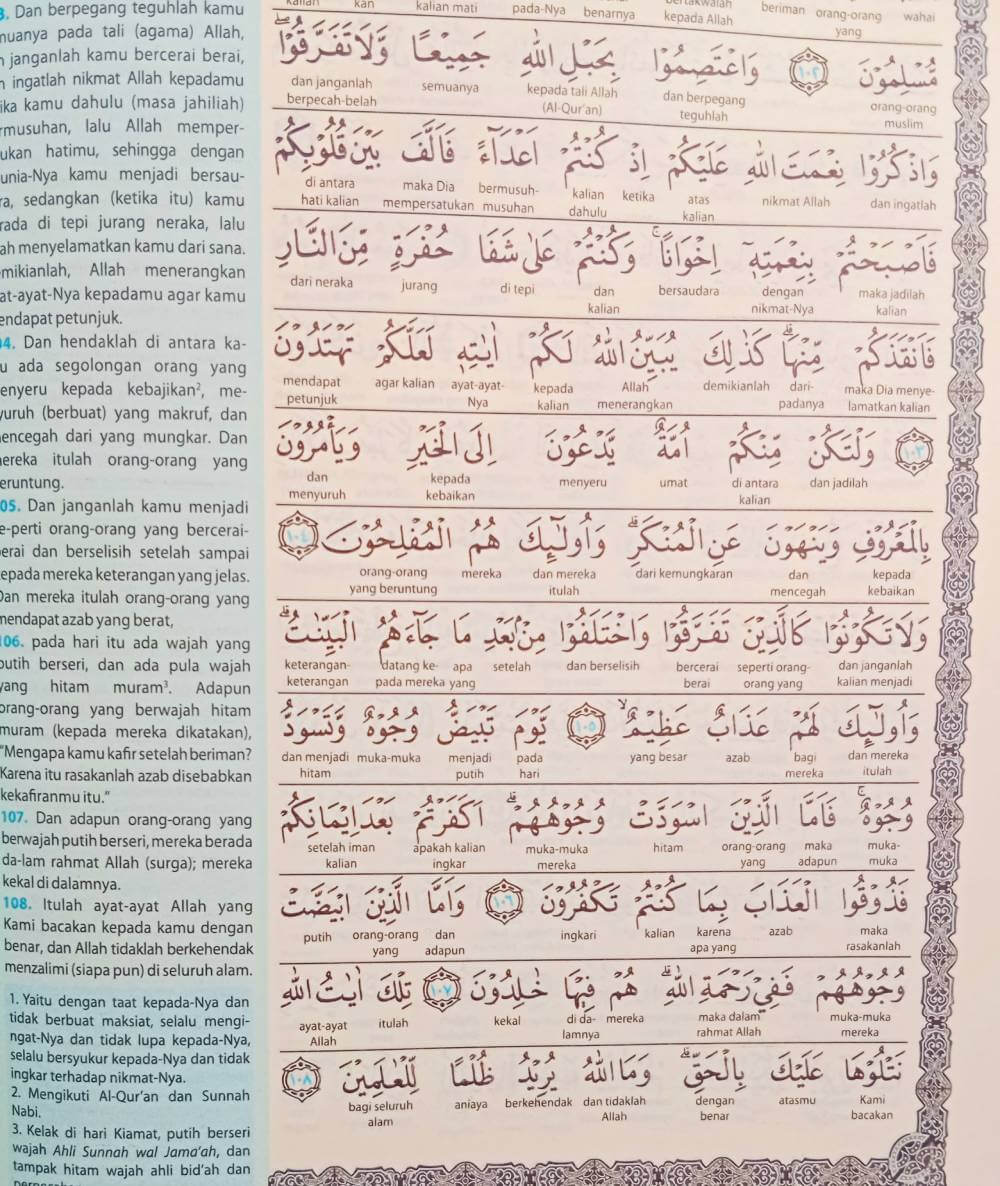 3. Dan berpegang teguhlah kamu
pada tali (agama) Allah,
janganlah kamu bercerai berai,
ingatlah nikmat Allah kepadamu
kamu dahulu (masa jahiliah)
lalu Allah memper-
hatimu, sehingga dengan
kamu menjadi bersau-
sedangkan (ketika itu) kamu
di tepi jurang neraka, lalu
menyelamatkan kamu dari sana.
Allah menerangkan
kepadamu agar kamu
petunjuk.
4. Dan hendaklah di antara ka-
ada segolongan orang yang
kepada kebajikan², me-
(berbuat) yang makruf, dan
dari yang mungkar. Dan
itulah orang-orang yang
05. Dan janganlah kamu menjadi
orang-orang yang bercerai-
dan berselisih setelah sampai
mereka keterangan yang jelas.
mereka itulah orang-orang yang
mendapat azab yang berat,
106. pada hari itu ada wajah yang
putih berseri, dan ada pula wajah
yang hitam muram³. Adapun
orang-orang yang berwajah hitam
muram (kepada mereka dikatakan),
"Mengapa kamu kafir setelah beriman?
Karena itu rasakanlah azab disebabkan
kekafiranmu itu."
107. Dan adapun orang-orang yang
berwajah putih berseri, mereka berada
da-lam rahmat Allah (surga); mereka
kekal di dalamnya.
108. Itulah ayat-ayat Allah yang
Kami bacakan kepada kamu dengan
benar, dan Allah tidaklah berkehendak
menzalimi (siapa pun) di seluruh alam.
1. Yaitu dengan taat kepada-Nya dan
tidak berbuat maksiat, selalu mengi-
ngat-Nya dan tidak lupa kepada-Nya,
selalu bersyukur kepada-Nya dan tidak
ingkar terhadap nikmat-Nya.
2. Mengikuti Al-Qur'an dan Sunnah
Nabi.
3. Kelak di hari Kiamat, putih berseri
wajah Ahli Sunnah wal Jama'ah, dan
tampak hitam wajah ahli bid'ah dan
kalian kan kalian mati pada-Nya benarnya kepada Allah beriman orang-orang wahai
yang
مُّسْلِمُوْنَ ١٠٢ وَاعْتَصِمُوْا بِحَبْلِ اللّٰهِ جَمِيْعًا وَّلَا تَفَرَّقُوْاۖ
dan janganlah semuanya kepada tali Allah dan berpegang orang-orang
berpecah-belah (Al-Qur'an) teguhlah muslim
وَاذْكُرُوْا نِعْمَتَ اللّٰهِ عَلَيْكُمْ اِذْ كُنْتُمْ اَعْدَاۤءً فَاَلَّفَ بَيْنَ قُلُوْبِكُمْ
di antara maka Dia bermusuh- kalian ketika atas nikmat Allah dan ingatlah
hati kalian mempersatukan musuhan dahulu kalian
فَاَصْبَحْتُمْ بِنِعْمَتِهٖٓ اِخْوَانًاۚ وَكُنْتُمْ عَلٰى شَفَا حُفْرَةٍ مِّنَ النَّارِ
dari neraka jurang di tepi dan bersaudara dengan maka jadilah
kalian nikmat-Nya kalian
فَاَنْقَذَكُمْ مِّنْهَاۗ كَذٰلِكَ يُبَيِّنُ اللّٰهُ لَكُمْ اٰيٰتِهٖ لَعَلَّكُمْ تَهْتَدُوْنَ
mendapat agar kalian ayat-ayat- kepada Allah demikianlah dari- maka Dia menye-
petunjuk Nya kalian menerangkan padanya lamatkan kalian
١٠٣ وَلْتَكُنْ مِّنْكُمْ اُمَّةٌ يَّدْعُوْنَ اِلَى الْخَيْرِ وَيَأْمُرُوْنَ
dan kepada menyeru umat di antara dan jadilah
menyuruh kebaikan kalian
بِالْمَعْرُوْفِ وَيَنْهَوْنَ عَنِ الْمُنْكَرِۗ وَاُولٰۤىِٕكَ هُمُ الْمُفْلِحُوْنَ ١٠٤
orang-orang mereka dan mereka dari kemungkaran dan kepada
yang beruntung itulah mencegah kebaikan
وَلَا تَكُوْنُوْا كَالَّذِيْنَ تَفَرَّقُوْا وَاخْتَلَفُوْا مِنْۢ بَعْدِ مَا جَاۤءَهُمُ الْبَيِّنٰتُۗ
keterangan- datang ke- apa setelah dan berselisih bercerai seperti orang- dan janganlah
keterangan pada mereka yang berai orang yang kalian menjadi
وَاُولٰۤىِٕكَ لَهُمْ عَذَابٌ عَظِيْمٌۙ ١٠٥ يَّوْمَ تَبْيَضُّ وُجُوْهٌ وَّتَسْوَدُّ
dan menjadi muka-muka menjadi pada yang besar azab bagi dan mereka
hitam putih hari mereka itulah
وُجُوْهٌۚ فَاَمَّا الَّذِيْنَ اسْوَدَّتْ وُجُوْهُهُمْۗ اَكَفَرْتُمْ بَعْدَ اِيْمَانِكُمْ
setelah iman apakah kalian muka-muka hitam orang-orang maka muka-
kalian ingkar mereka yang adapun muka
فَذُوْقُوا الْعَذَابَ بِمَا كُنْتُمْ تَكْفُرُوْنَ ١٠٦ وَاَمَّا الَّذِيْنَ ابْيَضَّتْ
putih orang-orang dan ingkari kalian karena azab maka
yang adapun apa yang rasakanlah
وُجُوْهُهُمْ فَفِيْ رَحْمَةِ اللّٰهِۗ هُمْ فِيْهَا خٰلِدُوْنَ ١٠٧ تِلْكَ اٰيٰتُ اللّٰهِ
ayat-ayat itulah kekal di da- mereka maka dalam muka-muka
Allah lamnya rahmat Allah mereka
نَتْلُوْهَا عَلَيْكَ بِالْحَقِّۗ وَمَا اللّٰهُ يُرِيْدُ ظُلْمًا لِّلْعٰلَمِيْنَ ١٠٨
bagi seluruh aniaya berkehendak dan tidaklah dengan atasmu Kami
alam Allah benar bacakan